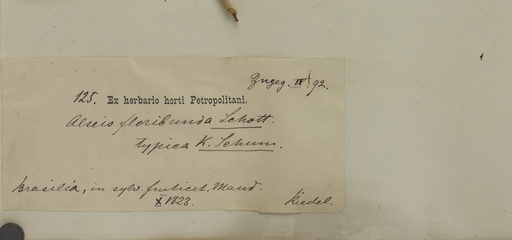 Zugeg. IX 92.
125. Ex herbario horti Petropolitani.
Alseis floribunda Schott.
typica K. Schum.
Brasilia, in sylv. fruticet. Mand.
X 1823.
Riedel.